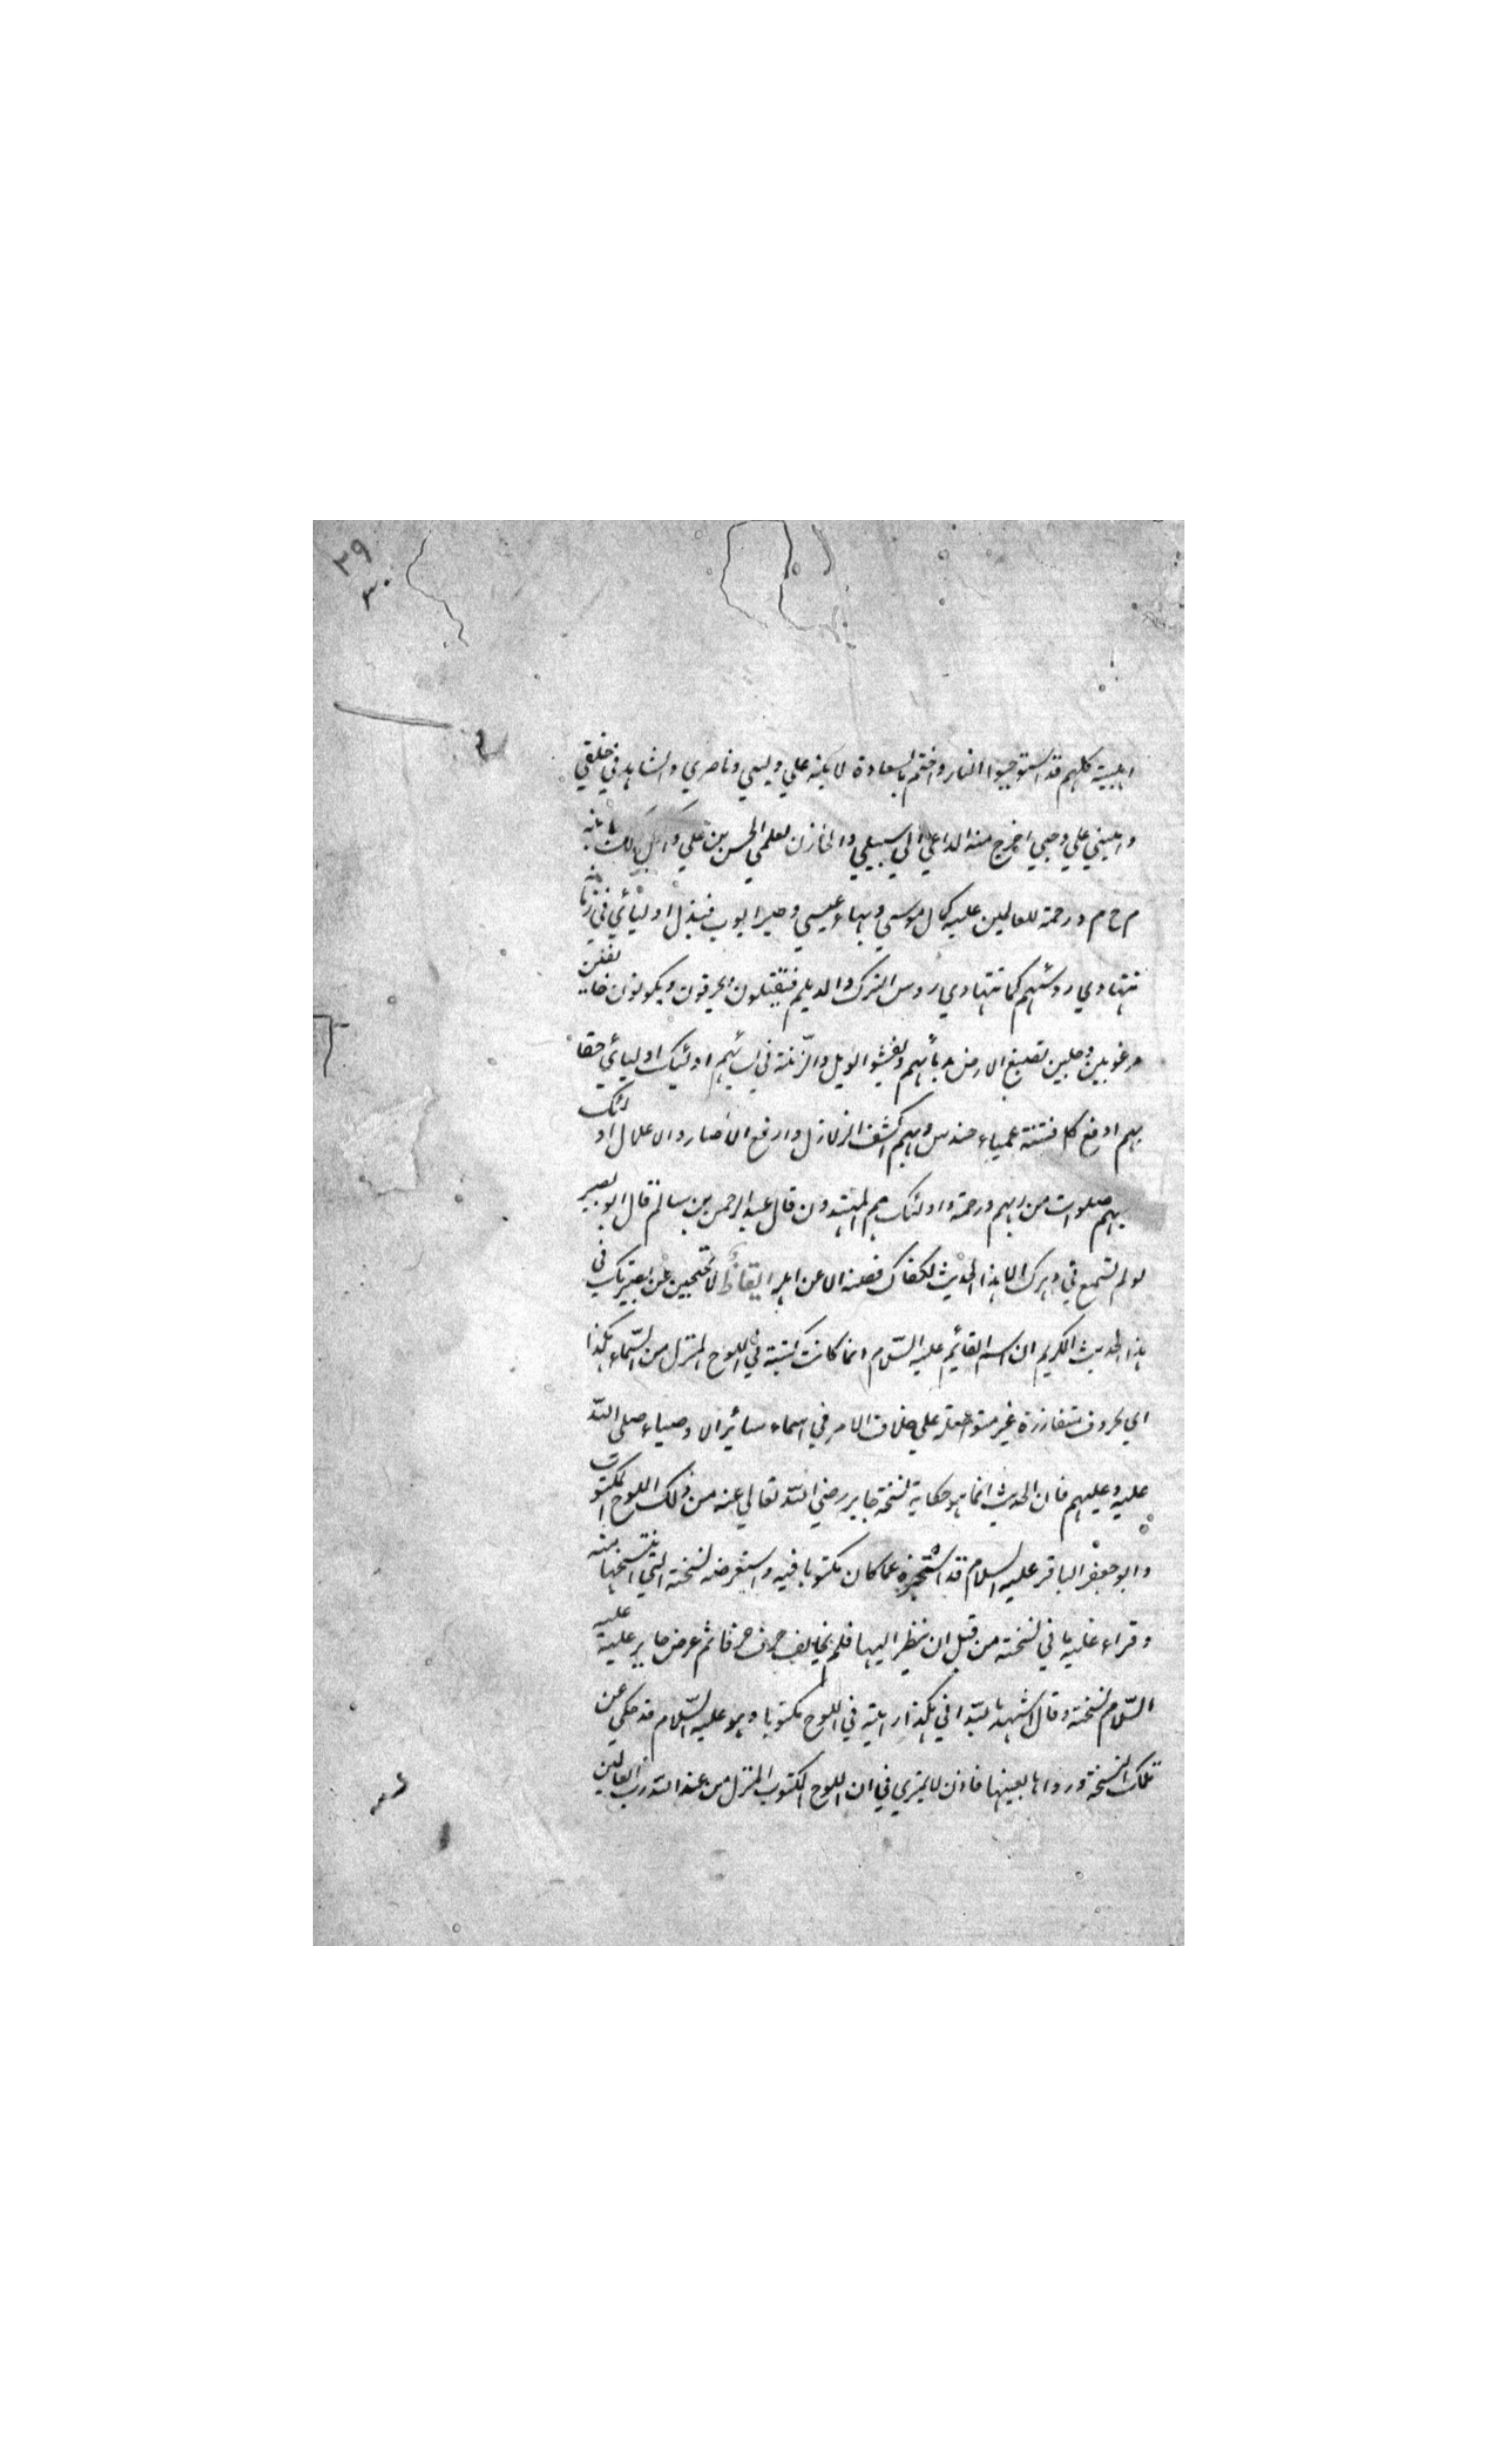 ۲۹
۳۰
اهلبیته کلهم قد استوجبوا النار واختم بالسعادة لابنه علي وليي وناصري والشاهد في خلقي
واميني علي وحيي اخرج منه الداعي الي سبيلي والخازن لعلمي الحسن بن علي واكمل ذلك بابنه
م ح م د رحمة للعالمين عليه كمال موسي وبهاء عيسي وصبر ايوب فيذل اوليائي في زمانه
تتهادي رؤسهم كما تتهادي رؤس الترك والديلم فيقتلون ويحرقون ويكونون خائفين
مرغوبين وجلين تصبغ الارض بدمائهم ويفشو الويل والرّنة في نسائهم اولئك اوليائي حقا
بهم ادفع كل فتنة عمياء حندس وبهم اكشف الزلازل وارفع الاصار والاغلال اولئك
عليهم صلوات من ربهم ورحمة واولئك هم المهتدون قال عبد الرحمن بن سالم قال ابو بصير
لو لم تسمع في دهرك الا هذا الحديث لكفاك فصنه الا عن اهله ايقاظ لا تحجبن عن بصيرتك في
هذا الحديث الكريم ان اسم القائم عليه السّلام انما كانت كتبته في اللوح المنزل من السّماء هكذا
اي بحروف متفارزة غير متواصلة علي خلاف الامر في اسماء سائر الاوصياء صلي اللّه
عليه وعليهم فان الحديث انما هو حكاية نسخة جابر رضي اللّه تعالي عنه من ذلك اللوح المكتوب
وابو جعفر الباقر عليه السلام قد استخبره عما كان مكتوبا فيه واستعرضه نسخته التي انتسخها منه
وقراء عليه ما في نسخته من قبل ان ينظر اليها فلم يخالف حرف حرفا ثم عرض جابر عليه عليه
السّلام نسخته وقال اشهد باللّه اني هكذا رايته في اللوح مكتوبا وهو عليه السّلام قد حكي عن
تلك النسخة ورواها بعينها فاذن لا يمتري في ان اللوح المكتوب المنزل من عند اللّه رب العالمين